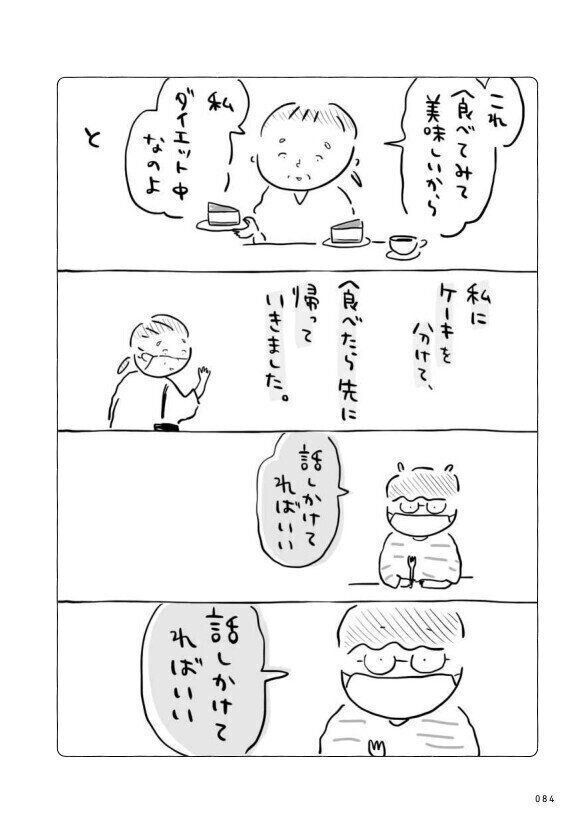 これ
食べてみて
美味しいから
私
ダイエット中
なのよ
と
私に
ケーキを
分けて、
食べたら先に
帰って
いきました。
話しかけて
ればいい
話しかけて
ればいい
084